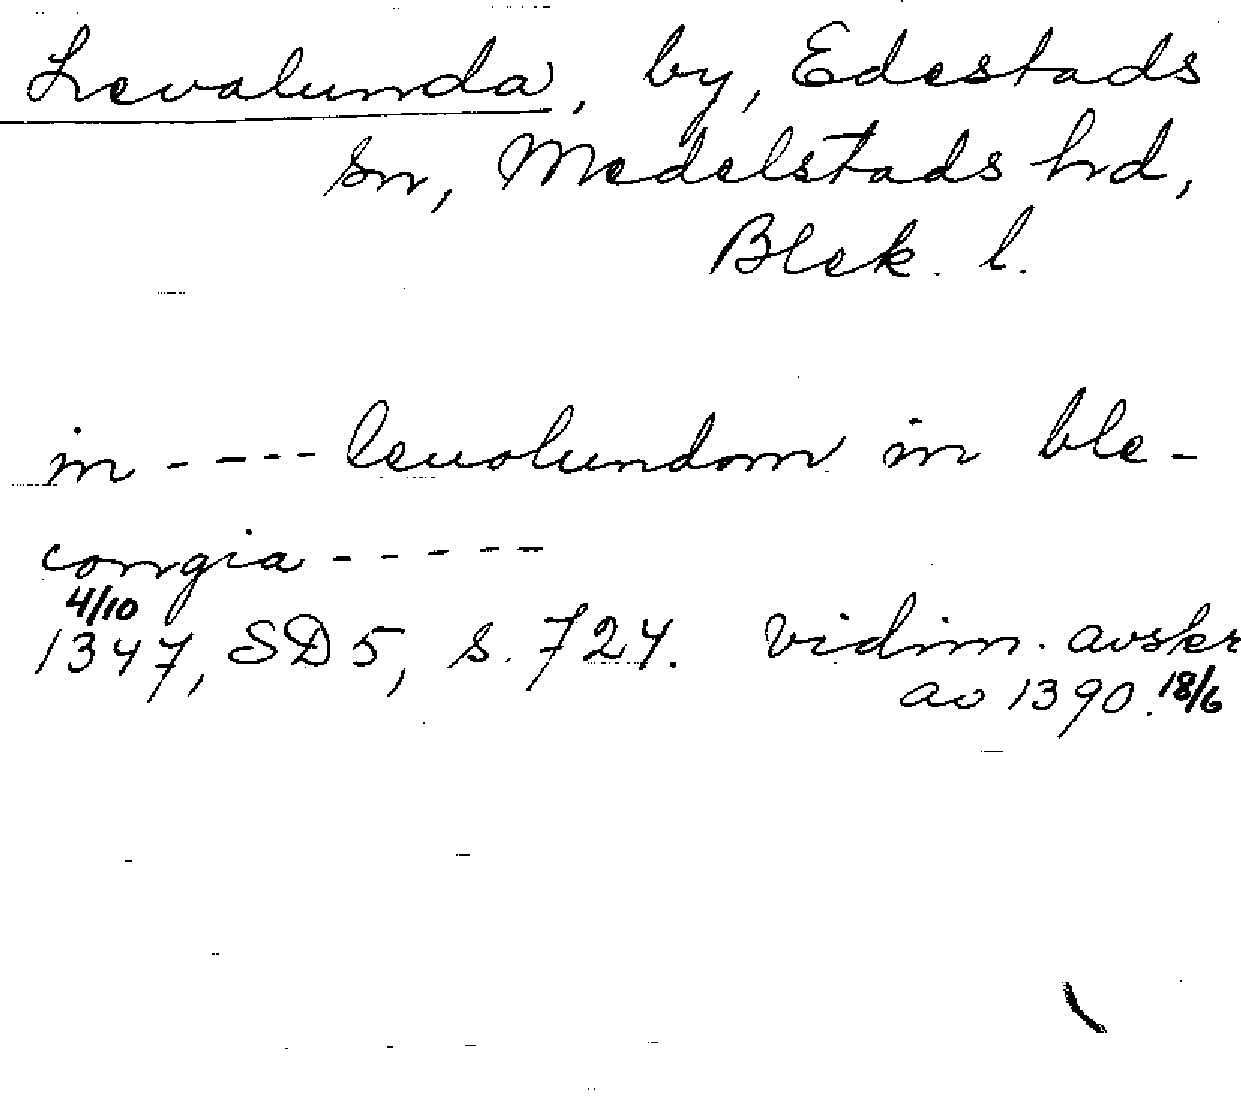 Levalunda, by, Edestads
sn, Medelstads hrd,
Blek. l.
in ---- leuolundom in ble-
congia -----
4/10
1347, SD 5, s. 724. Vidim. avskr
av 1390. 18/6